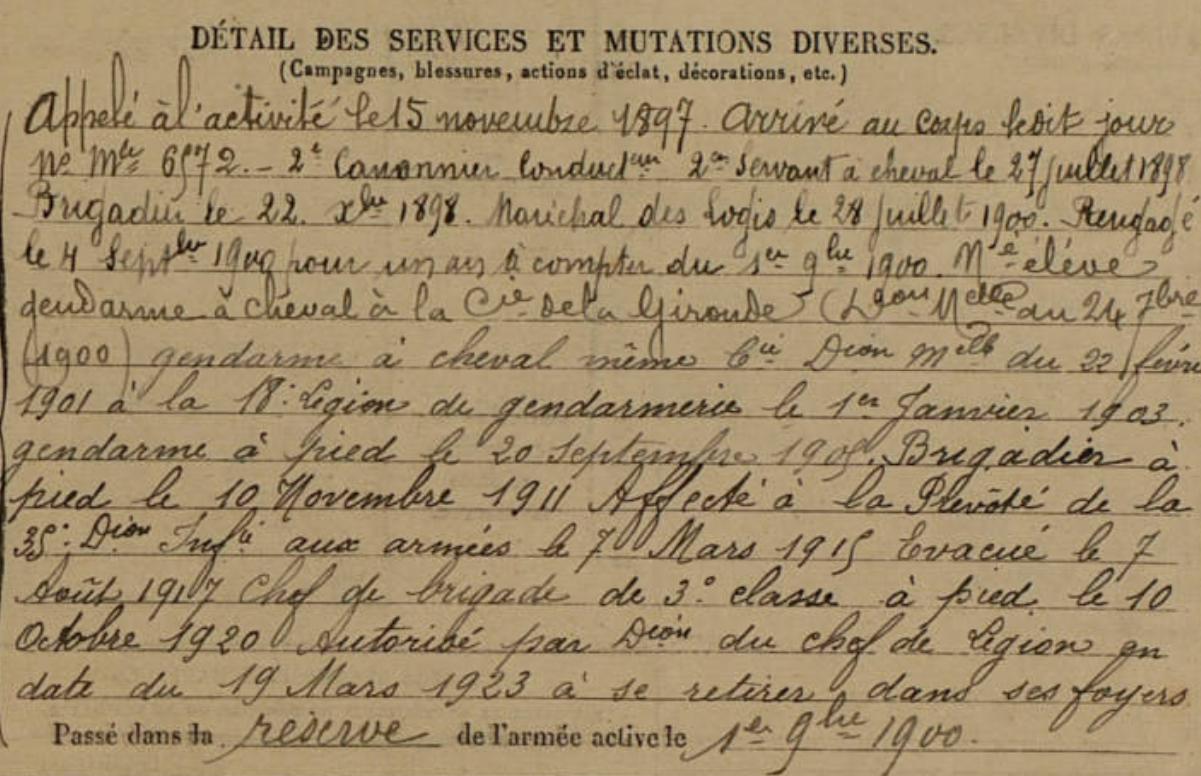 DÉTAIL DES SERVICES ET MUTATIONS DIVERSES.
(Campagnes, blessures, actions d'éclat, décorations, etc.)
Appelé à l'activité le 15 novembre 1897. Arrivé au corps ledit jour
No Mle 6572. - 2e Canonnier Conducteur 2e Servant à cheval le 27 juillet 1898
Brigadier le 22. xbre 1898. Maréchal des Logis le 28 juillet 1900. Rengagé
le 4 Septbre 1900 pour un an à compter du 1er 9bre 1900. Né élève
gendarme à cheval à la Cie de la Gironde (Don Melle du 24 7bre
1900) gendarme à cheval même Cie Dion Melle du 22 févri
1901 à la 18e Légion de gendarmerie le 1er Janvier 1903.
gendarme à pied le 20 Septembre 1905. Brigadier à
pied le 10 Novembre 1911 Affecté à la Prévôté de la
35e Dion Infie aux armées le 7 Mars 1915 Evacué le 7
Août 1917 Chef de brigade de 3e classe à pied le 10
Octobre 1920 Autorisé par Dion du chef de Légion en
date du 19 Mars 1923 à se retirer dans ses foyers
Passé dans la réserve de l'armée active le 1er 9bre 1900.